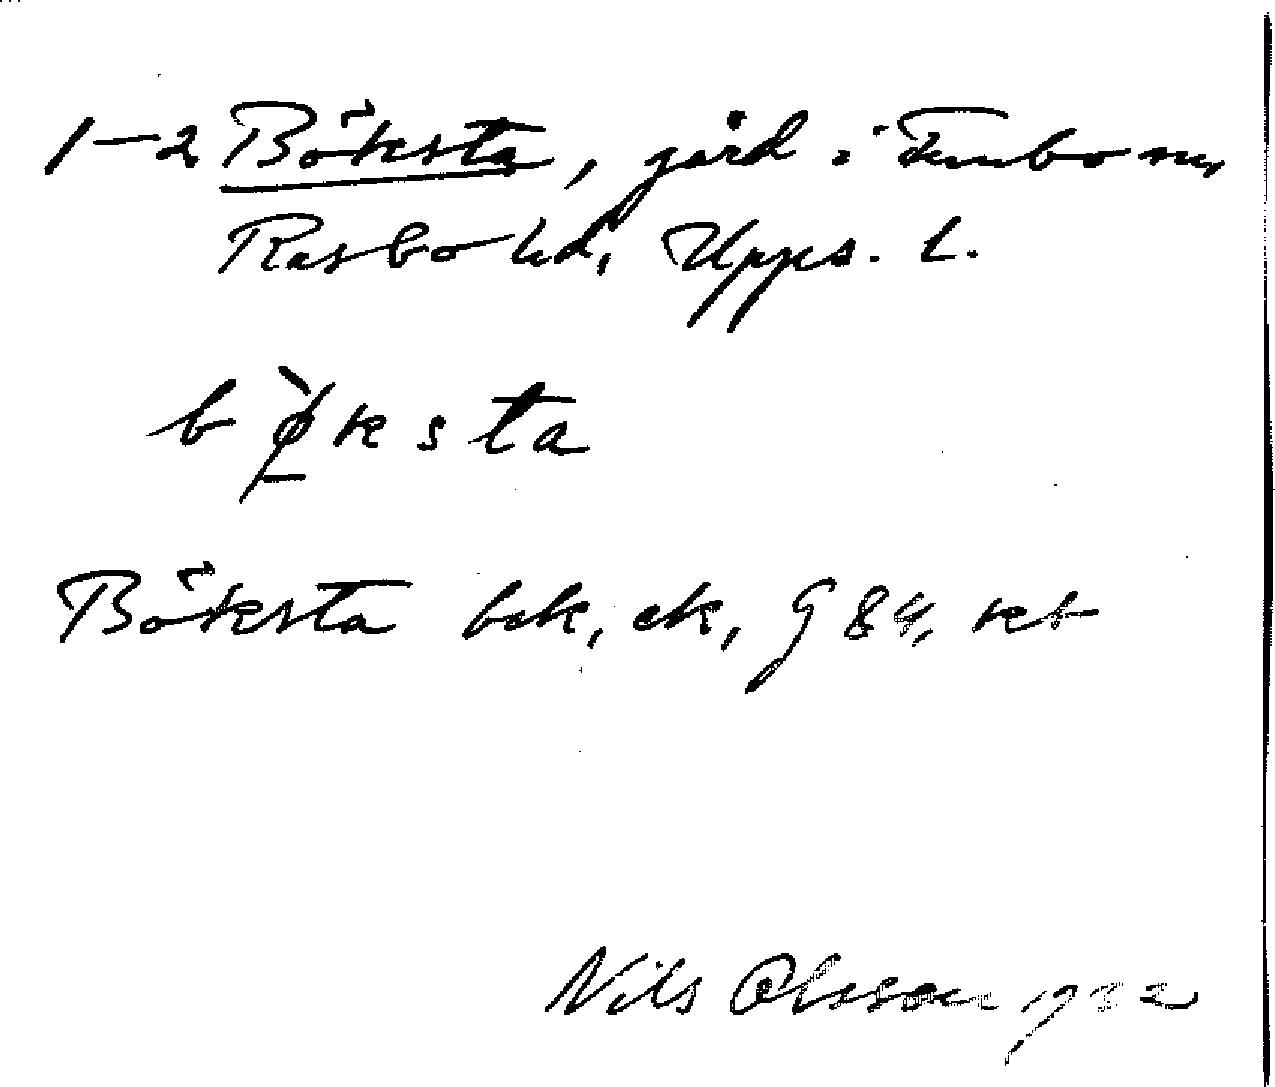 1-2 Böksta, gård i Funbo sn,
Rasbo hd, Upps. l.
b ø̀ k s t a
Böksta ek,
Nils Olsson 1932